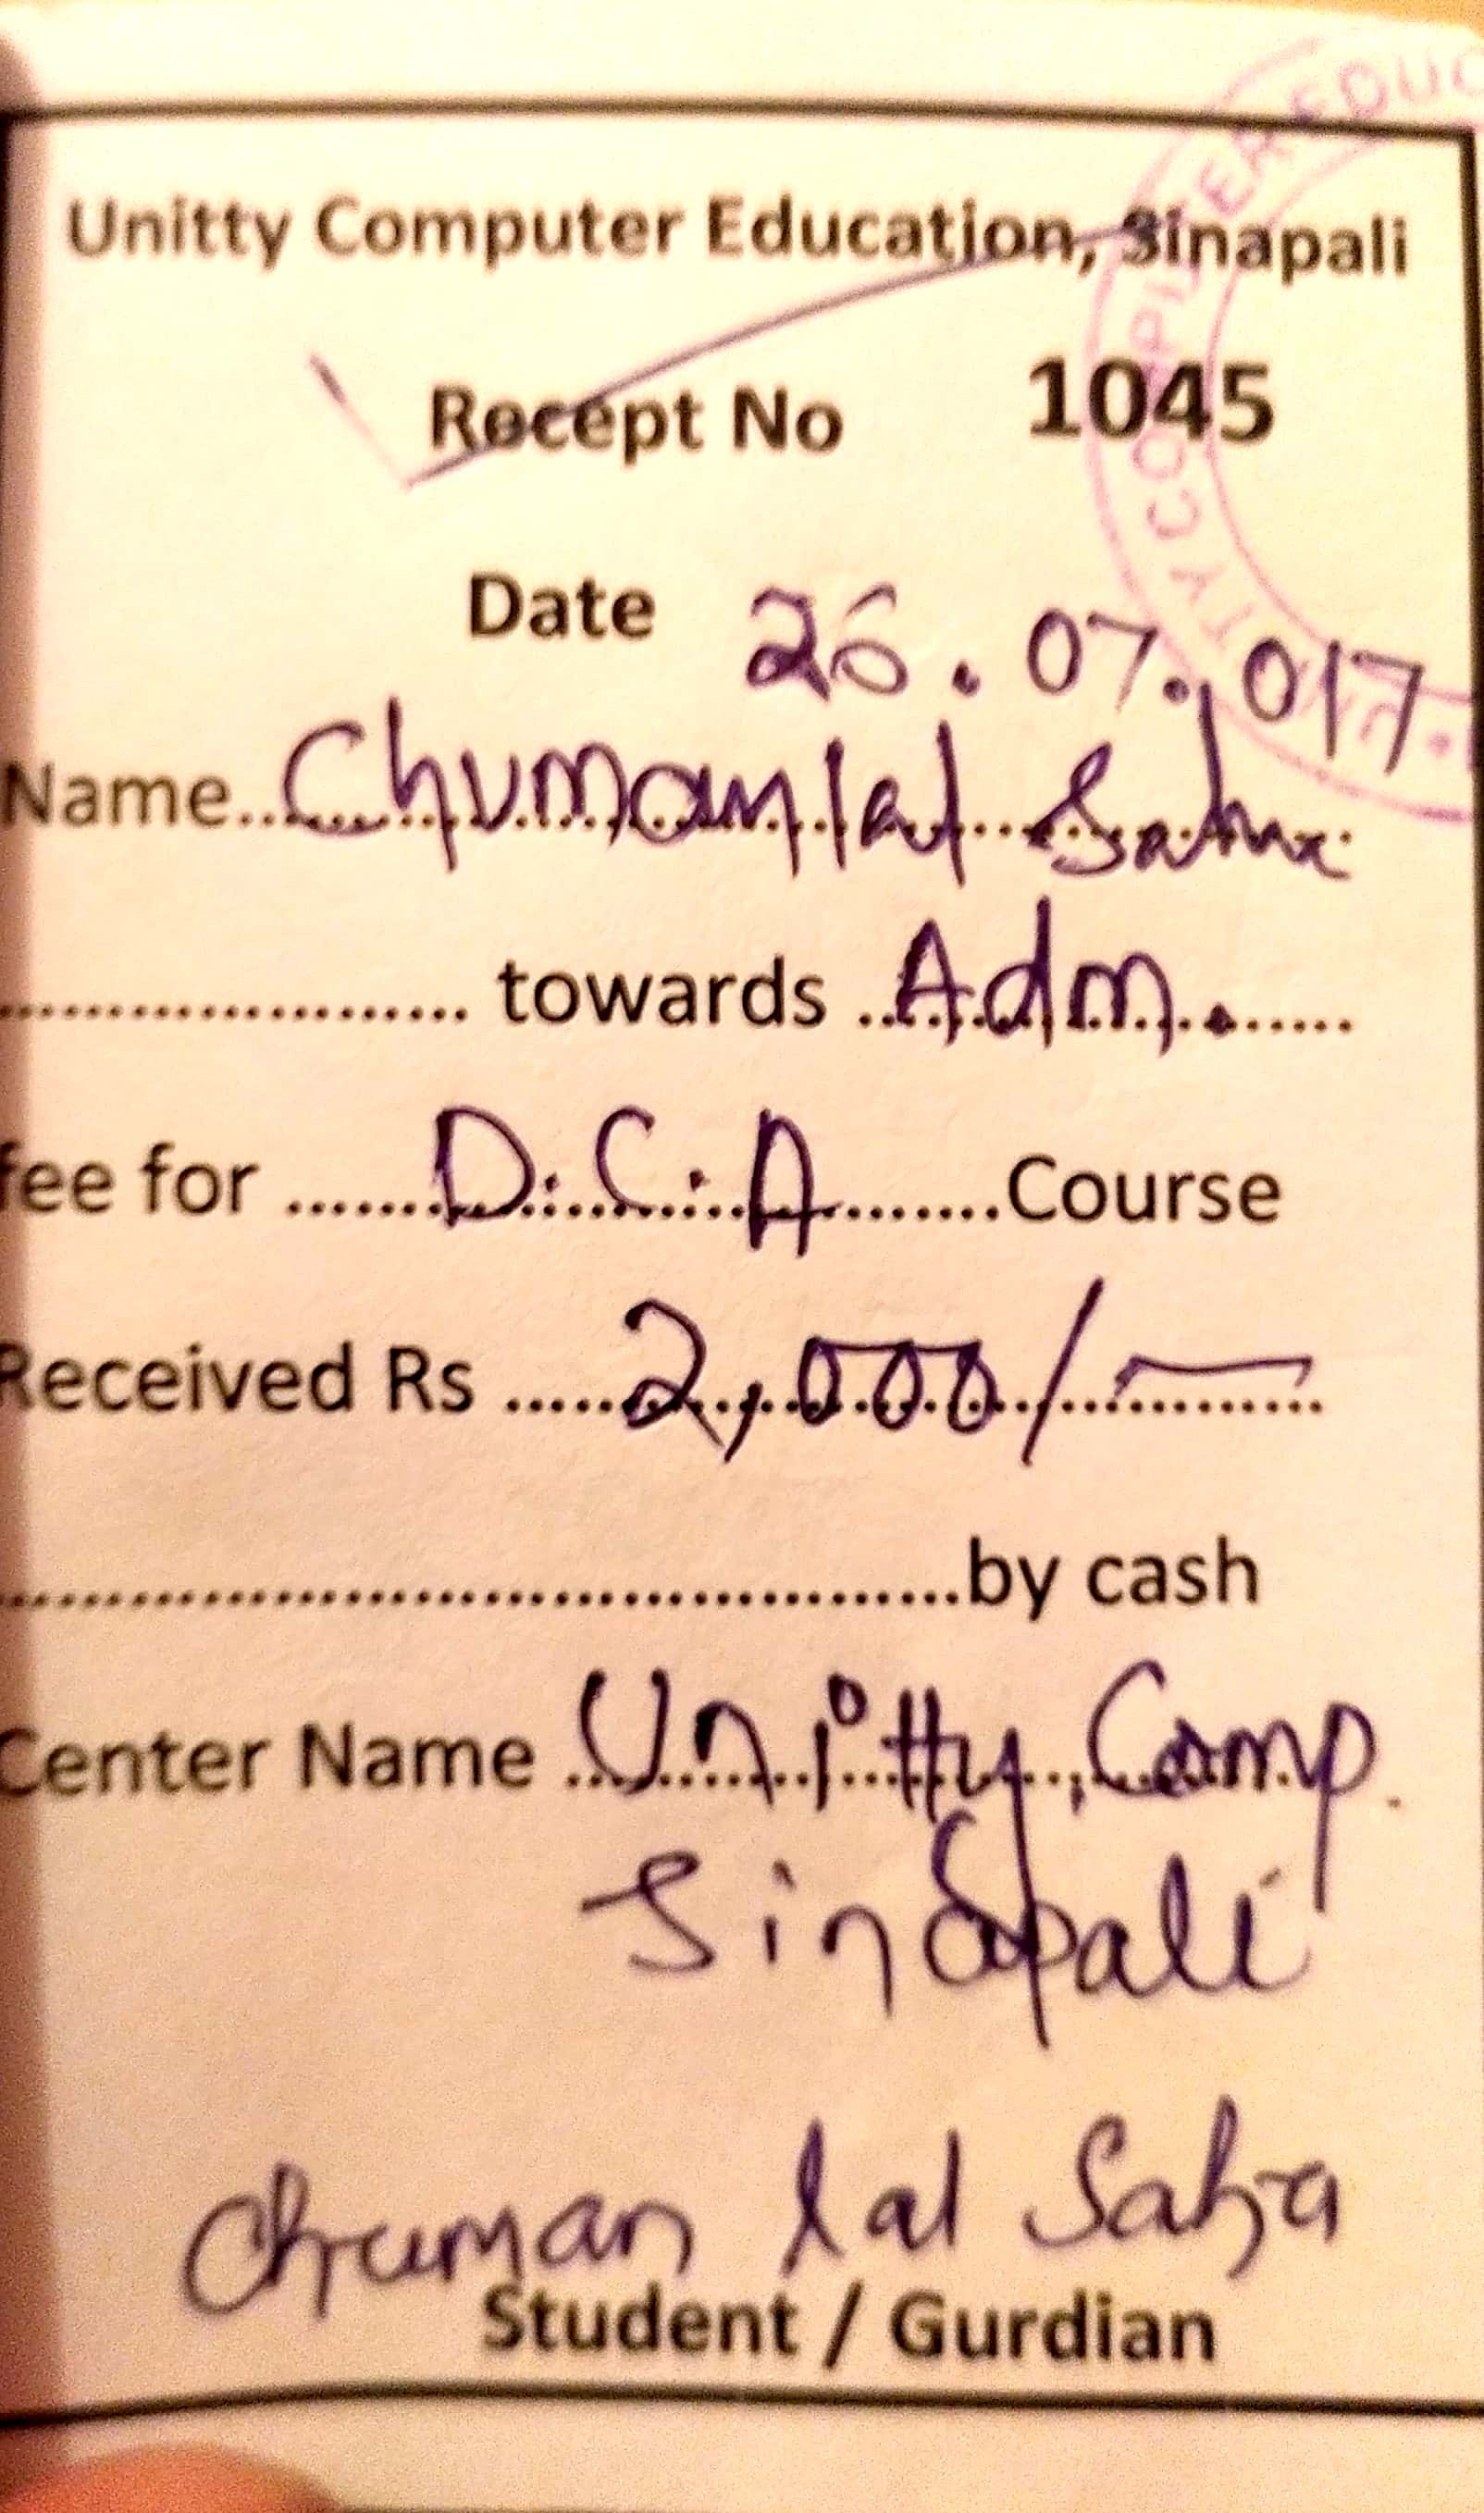 Unitty Computer Education, Sinapali
Recept No 1045
Date 26.07.017
Name.......Chumanlal Saha
.................... towards ..Adm. ......
fee for .......D.C.A........Course
Received Rs ......2,000/-
..........................................by cash
Center Name ..Unitty Comp.
Sinapali
Chuman lal Saha
Student / Gurdian
UNITTY COMPUTER EDUC